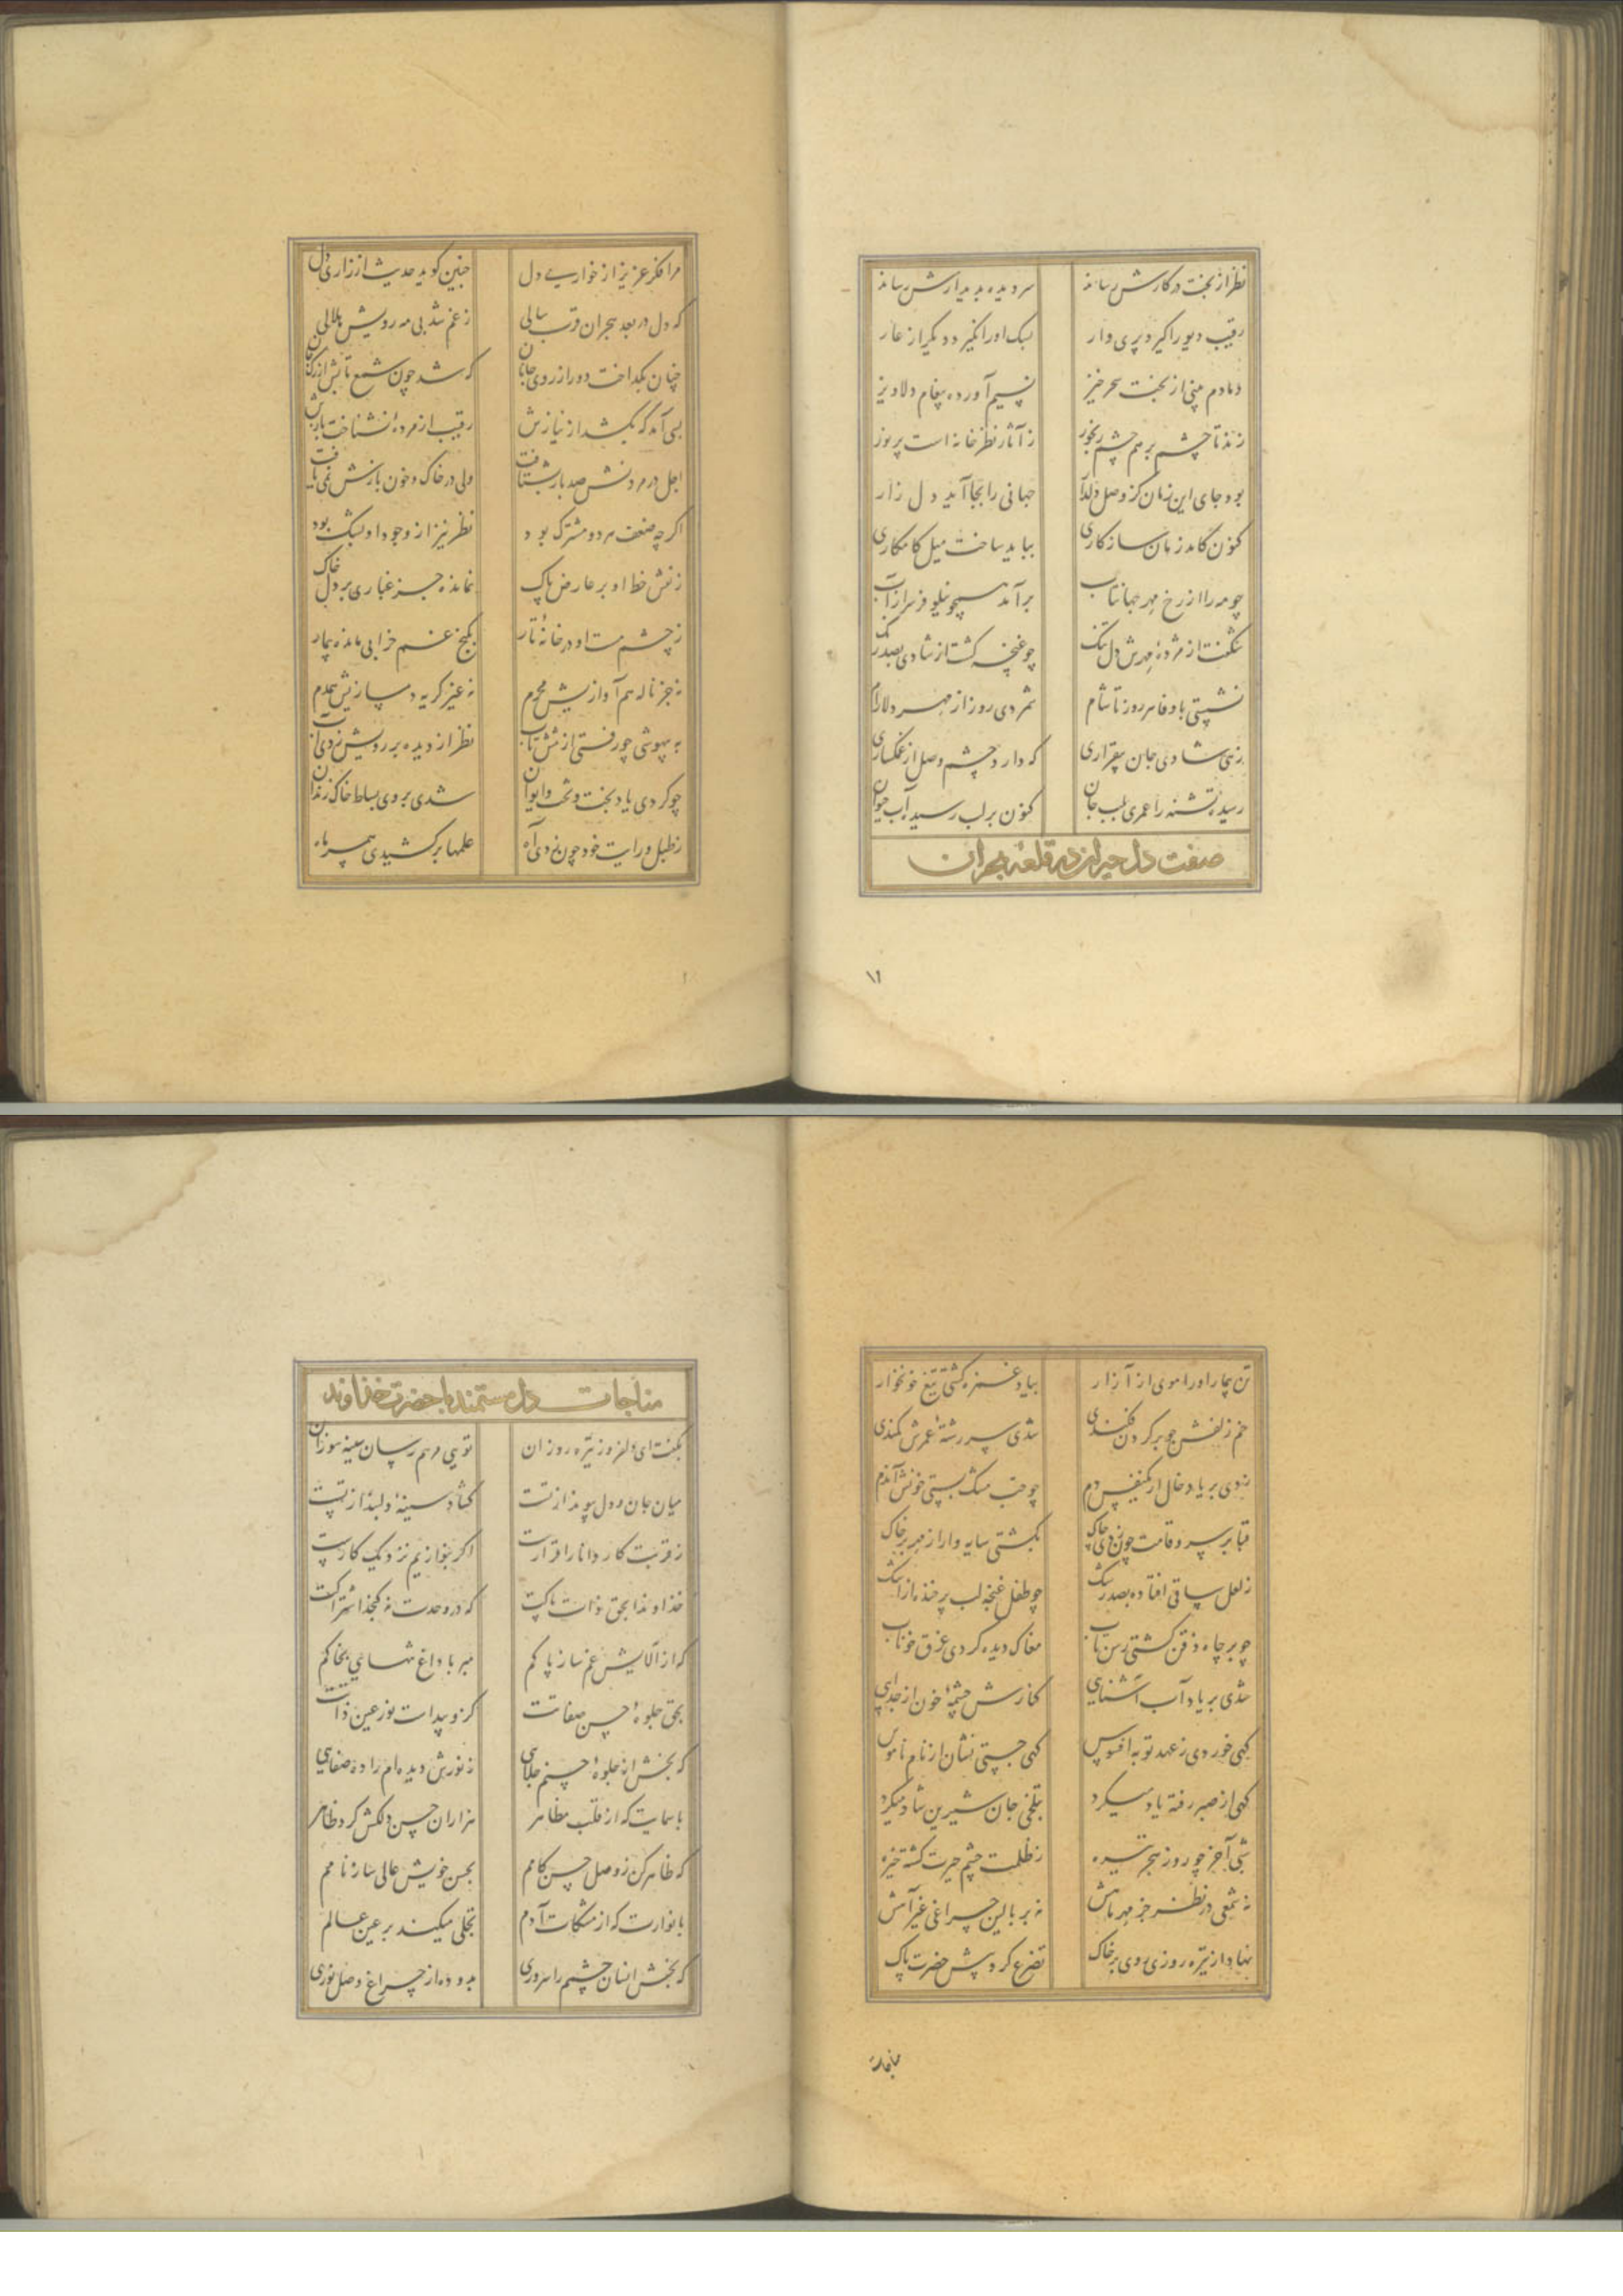 نظر از بخت در کارش رساند سر دیده بدیدارش رساند
رقیب دیو را گیرد پری وار سبک او را نگیرد دیگر از عار
دمادم بینی از بخت سحرخیز نسیم آورده پیغام دلاویز
زند تا چشم بر هم چشم رنجور ز آثار نظر خانه است پر نور
بود جای این زمان کز وصل دلدار جهانی را بجا آید دل زار
کنون کامد زمان سازکاری بباید ساخت میل کامکاری
چو مه را از رخ مهر جهانتاب برآمد همچو نیلوفر سر از آب
شکفت از مژدهٔ مهرش دل تنگ چو غنچه گشت از شادی بصد رنگ
نشستی با وفا هر روز تا شام شمردی روز از مهر دلارام
زهی شادی جان بیقراری که دارد چشم وصل از غمکساری
رسیده تشنه را عمری بلب جان کنون بر لب رسید آب حیوان
صفت دل حیران در قلعه هجران
۱۱
مرا فکر عزیز از خواری دل چنین گوید حدیث از زاری دل
که دل در بعد هجران قرب سالی ز غم شد بی مه رویش هلالی
چنان بگداخت دور از روی جانان که شد چون شمع تابش از رگ
بسی آمد که بکشد از نیازش رقیب از مرده نشناخت بازش
اجل در مردنش صد بار بشتافت ولی در خاک و خون بازش نمی یافت
اگر چه ضعف مرد و مشترک بود نظر نیز از وجود او بشک بود
ز نقش خط او بر عارض پاک نمانده جز غباری بر دل خاک
ز چشم مست او در خانهٔ تار بکنج غم خرابی مانده بیمار
نه جز ناله هم آوازیش محرم نه غیر گریه دمسازیش همدم
به بیهوشی چو رفتی از تنش تاب نظر از دیده بر رویش زدی آب
چو کردی یاد بخت و تخت و ایوان شدی بر روی بساط خاک زندان
ز طبل و رایت خود چون زدی آه علمها برکشیدی همسر ماه
تن بیمار او را موی از آزار بیاد غمزه گشتی تیغ خونخوار
خم زلفش چو بر گردن فکندی شدی سر رشتهٔ عمرش کمندی
زدی بر یاد خال ار یکنفس دم چو حب مشک بستی خونش اندم
قبا بر سرو قامت چون زدی چاک بگشتی سایه وار از مهر بر خاک
ز لعل ساقی افتاده بصد رنگ چو طفل غنچه لب پر خنده از اشک
چو بر چاه ذقن گشتی رسن تاب مغاک دیده کردی غرق خوناب
شدی بر یاد آب آشنایی کنارش چشمهٔ خون از جدایی
گهی خوردی ز عهد توبه افسوس گهی جستی نشان از نام ناموس
گهی از صبر رفته یاد میکرد بتلخی جان شیرین شاد میکرد
شبی آخر چو روز هجر تیره ز ظلمت چشم حیرت گشته خیره
نه شمعی در نظر جز مهر ماهش نه بر بالین چراغی غیر آهش
نهاد از تیره روزی روی بر خاک تضرع کرد پیش حضرت پاک
مناجات
مناجات دل مستمند با حضرت خداوند
بگفت ای دلفروز تیره روزان تویی مرهم رسان سینه سوزان
میان جان و دل پیوند از تست گشاد سینهٔ دلبند از تست
ز قربت کار دانا را قرارست اگر بنوازیم نزدیک کارست
خداوندا بحق ذات پاکت که در وحدت نه گنجد اشتراکت
که از آلایش غم ساز پاکم مبر با داغ تنهایی بخاکم
بحق جلوهٔ حسن صفاتت کزو پیداست نور عین ذاتت
که بخش از جلوهٔ حسنم جلایی ز نورش دیده ام را ده صفایی
باسمایت که از قلب مظاهر هزاران حسن دلکش کرد ظاهر
که ظاهر کن ز وصل حسن کامم بحسن خویش عالی ساز نامم
بانوارت که از مشکات آدم تجلی میکند بر عین عالم
که بخش انسان چشمم را سروری بدو ده از چراغ وصل نوری